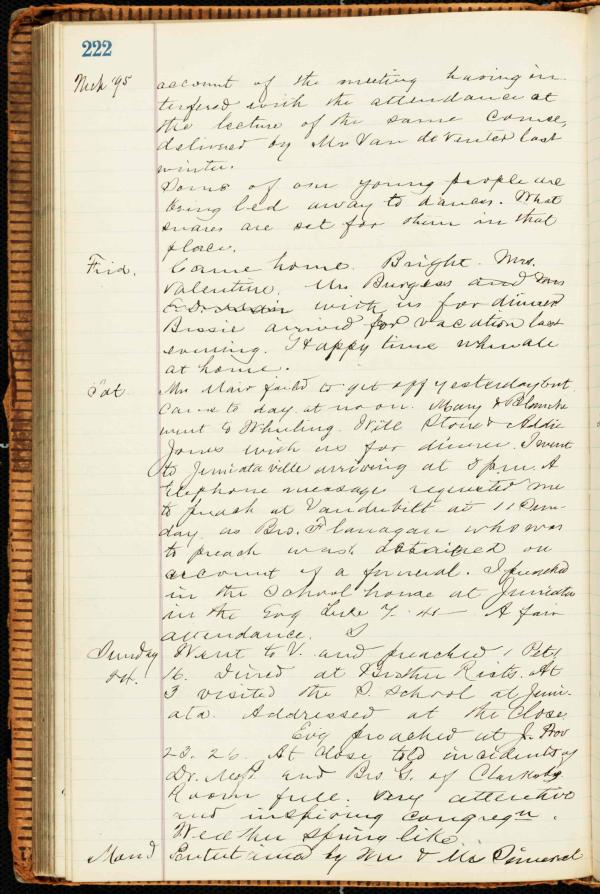 222
Mch 95 account of the meeting having in
terfered with the attendance at
the lecture of the same course,
delivered by Mr Van de Venter last
winter.
Some of our young people are
being led away to dances. What
snares are set for them in that
place.
Frid. Came home. Bright. Mrs.
Valentine, Mrs Burgess and
with us for dinner
Bessie arrived for vacation last
evening. Happy time when all
at home.
Sat. Mrs Mair failed to get off yesterday but
came to day at noon. Mary & Blanche
went to Wheeling. Will Stone & Addie
Jones with us for dinner. I went
to Juniataville arriving at 5 p.m. A
telephone message requested me
to preach at Vanderbilt at 11 Sun-
day, as Bro. Flanagan who was
to preach was detained on
account of a funeral. I preached
in the School house at Juniata
in the Evg Luke 7. 48 — A fair
attendance.
Sunday Went to V. and preached 1 Pet 1
24. 16. Dined at Brother Rists. At
3 visited the S. School at Juni-
ata. Addressed at the close.
Evg preached at J. Prov
23. 26. At close told incidents of
Dr. and Bro G. of Clarksbg
Room full. Very attentive
and inspiring congregn.
Weather spring like.
Mond Entertained by Mr & Mrs